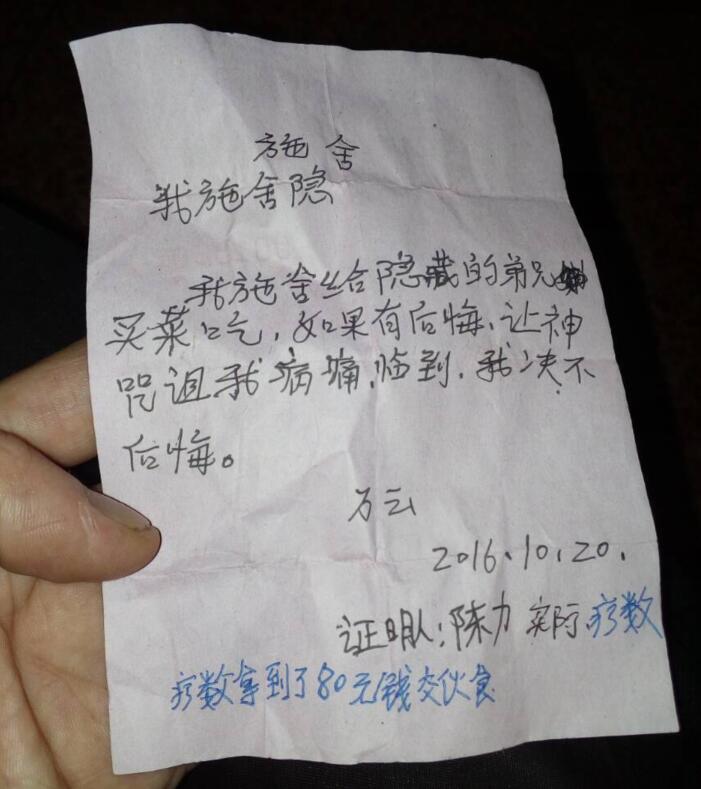 施舍
我施舍隐
我施舍给隐藏的弟兄
买菜吃，如果有后悔，让神
咒诅我病痛临到，我决不
后悔。
万云
2016.10.20.
证明人：陈力 实际 疗数
疗数拿到了80元钱交伙食